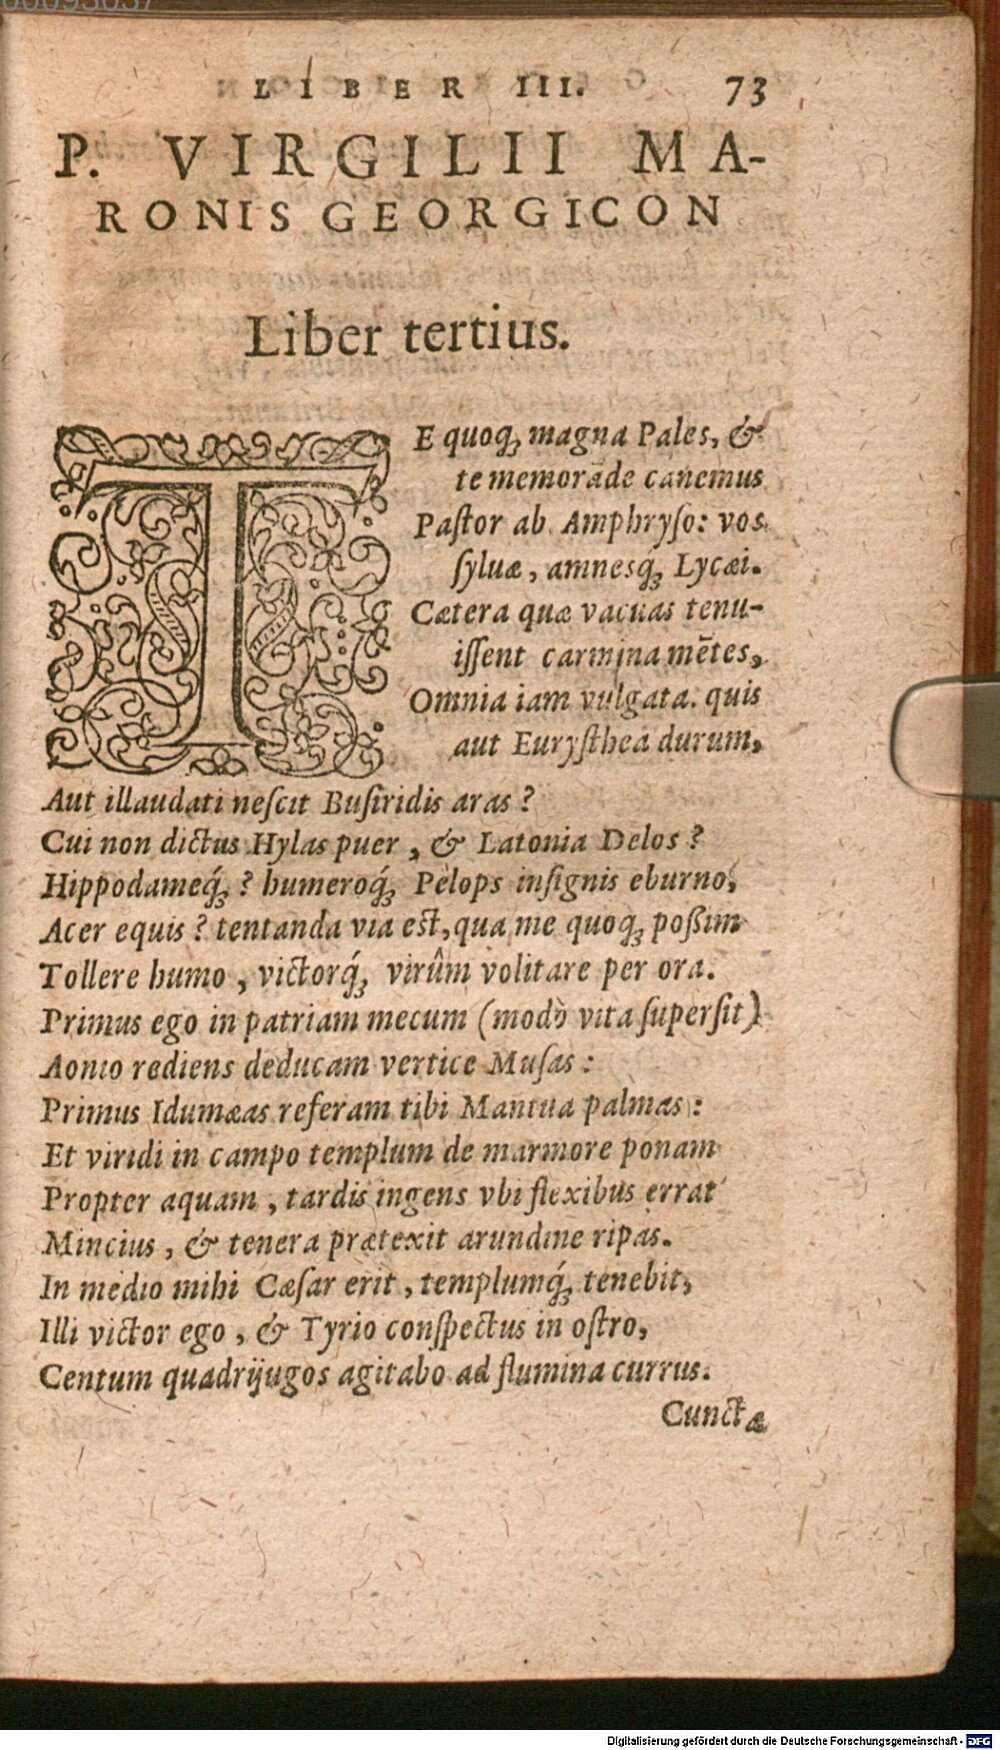 LIBER III. 73
P. VIRGILII MA-
RONIS GEORGICON
Liber tertius.
TE quoq; magna Pales, &
te memorãde canemus
Paſtor ab Amphryſo: vos
ſyluæ, amnesq́; Lycæi.
Cætera quæ vacuas tenu-
iſſent carmina mẽtes,
Omnia iam vulgata. quis
aut Euryſthea durum,
Aut illaudati neſcit Buſiridis aras?
Cui non dictus Hylas puer, & Latonia Delos?
Hippodameq́;? humeroq́; Pelops inſignis eburno,
Acer equis? tentanda via eſt, qua me quoq; poßim
Tollere humo, victorq́; virûm volitare per ora.
Primus ego in patriam mecum (modò vita ſuperſit)
Aonio rediens deducam vertice Muſas:
Primus Idumæas referam tibi Mantua palmas:
Et viridi in campo templum de marmore ponam
Propter aquam, tardis ingens vbi flexibus errat
Mincius, & tenera prætexit arundine ripas.
In medio mihi Cæſar erit, templumq́; tenebit,
Illi victor ego, & Tyrio conſpectus in oſtro,
Centum quadrijugos agitabo ad flumina currus.
Cunctæ
Digitalisierung gefördert durch die Deutsche Forschungsgemeinschaft - DFG